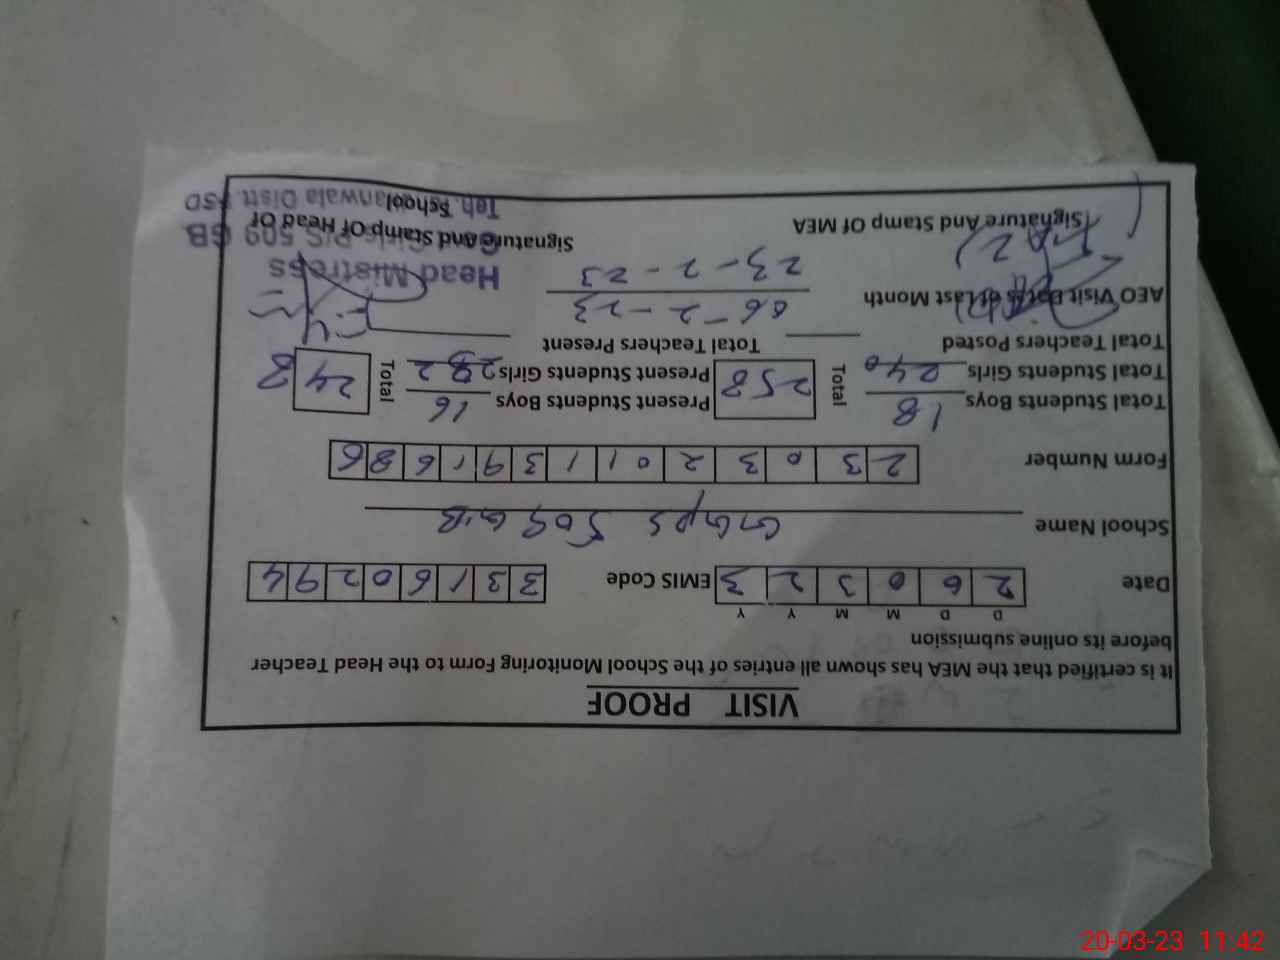 VISIT PROOF
It is certified that the MEA has shown all entries of the School Monitoring Form to the Head Teacher
before its online submission
D D M M Y Y
Date 2 0 0 3 2 3 EMIS Code 3 3 1 6 0 2 9 4
School Name GGPS 509 GB
Form Number 2 3 0 3 2 0 1 1 3 9 1 6 8 6
Total Students Boys 18 Total 258 Present Students Boys 16 Total 248
Total Students Girls 240 Present Students Girls 232
Total Teachers Posted Total Teachers Present
AEO Visit Dates of Last Month 06-2-23
23-2-23
Head Mistress
Signature And Stamp Of MEA Signature And Stamp Of Head Of
School
Govt. Girls P/S 509 GB
Teh. Distt. FSD
20-03-23 11:42